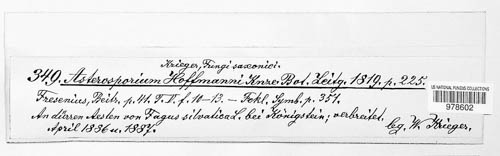 Krieger, Fungi saxonici.
349. Asterosporium Hoffmanni Knze. Bot. Zeitg. 1819. p. 225.
Fresenius, Beitr. p. 41. T. V. f. 10-13. – Fckl. Symb. p. 351.
An dürren Aesten von Fagus silvatica L. bei Königstein; verbreitet.
April 1886 u. 1887.
leg. W. Krieger.
US NATIONAL FUNGUS COLLECTIONS
978602